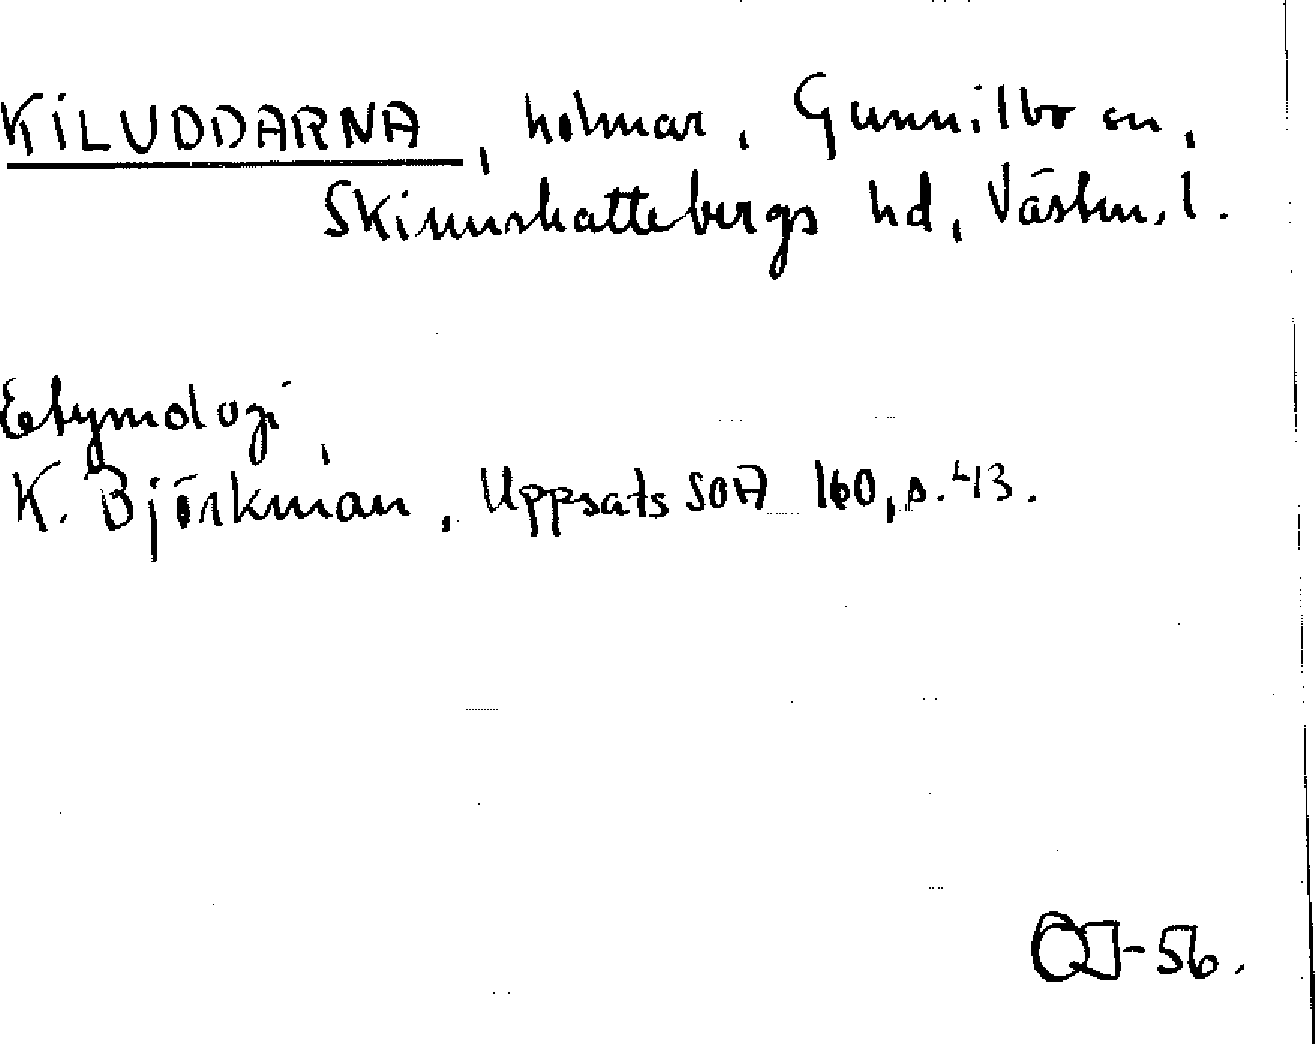 KILUDDARNA, holmar, Gunnilbo sn,
Skinnskattebergs hd, Västm. l.
Etymologi
K. Björkman, Uppsats SOA 160, s. 43.
OJ-56.